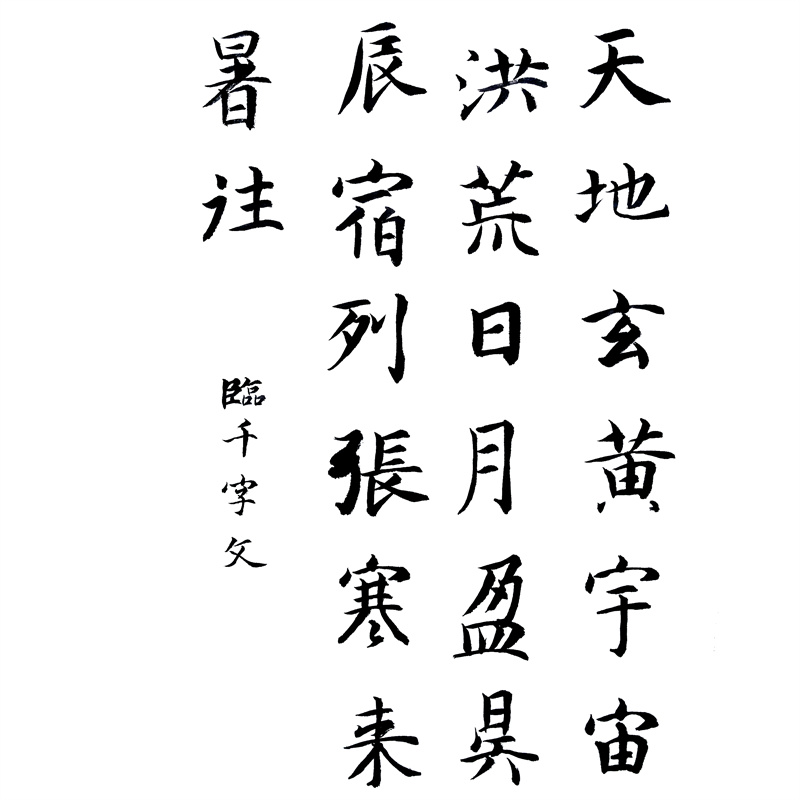 天地玄黄宇宙
洪荒日月盈昃
辰宿列張寒来
暑往
臨千字文